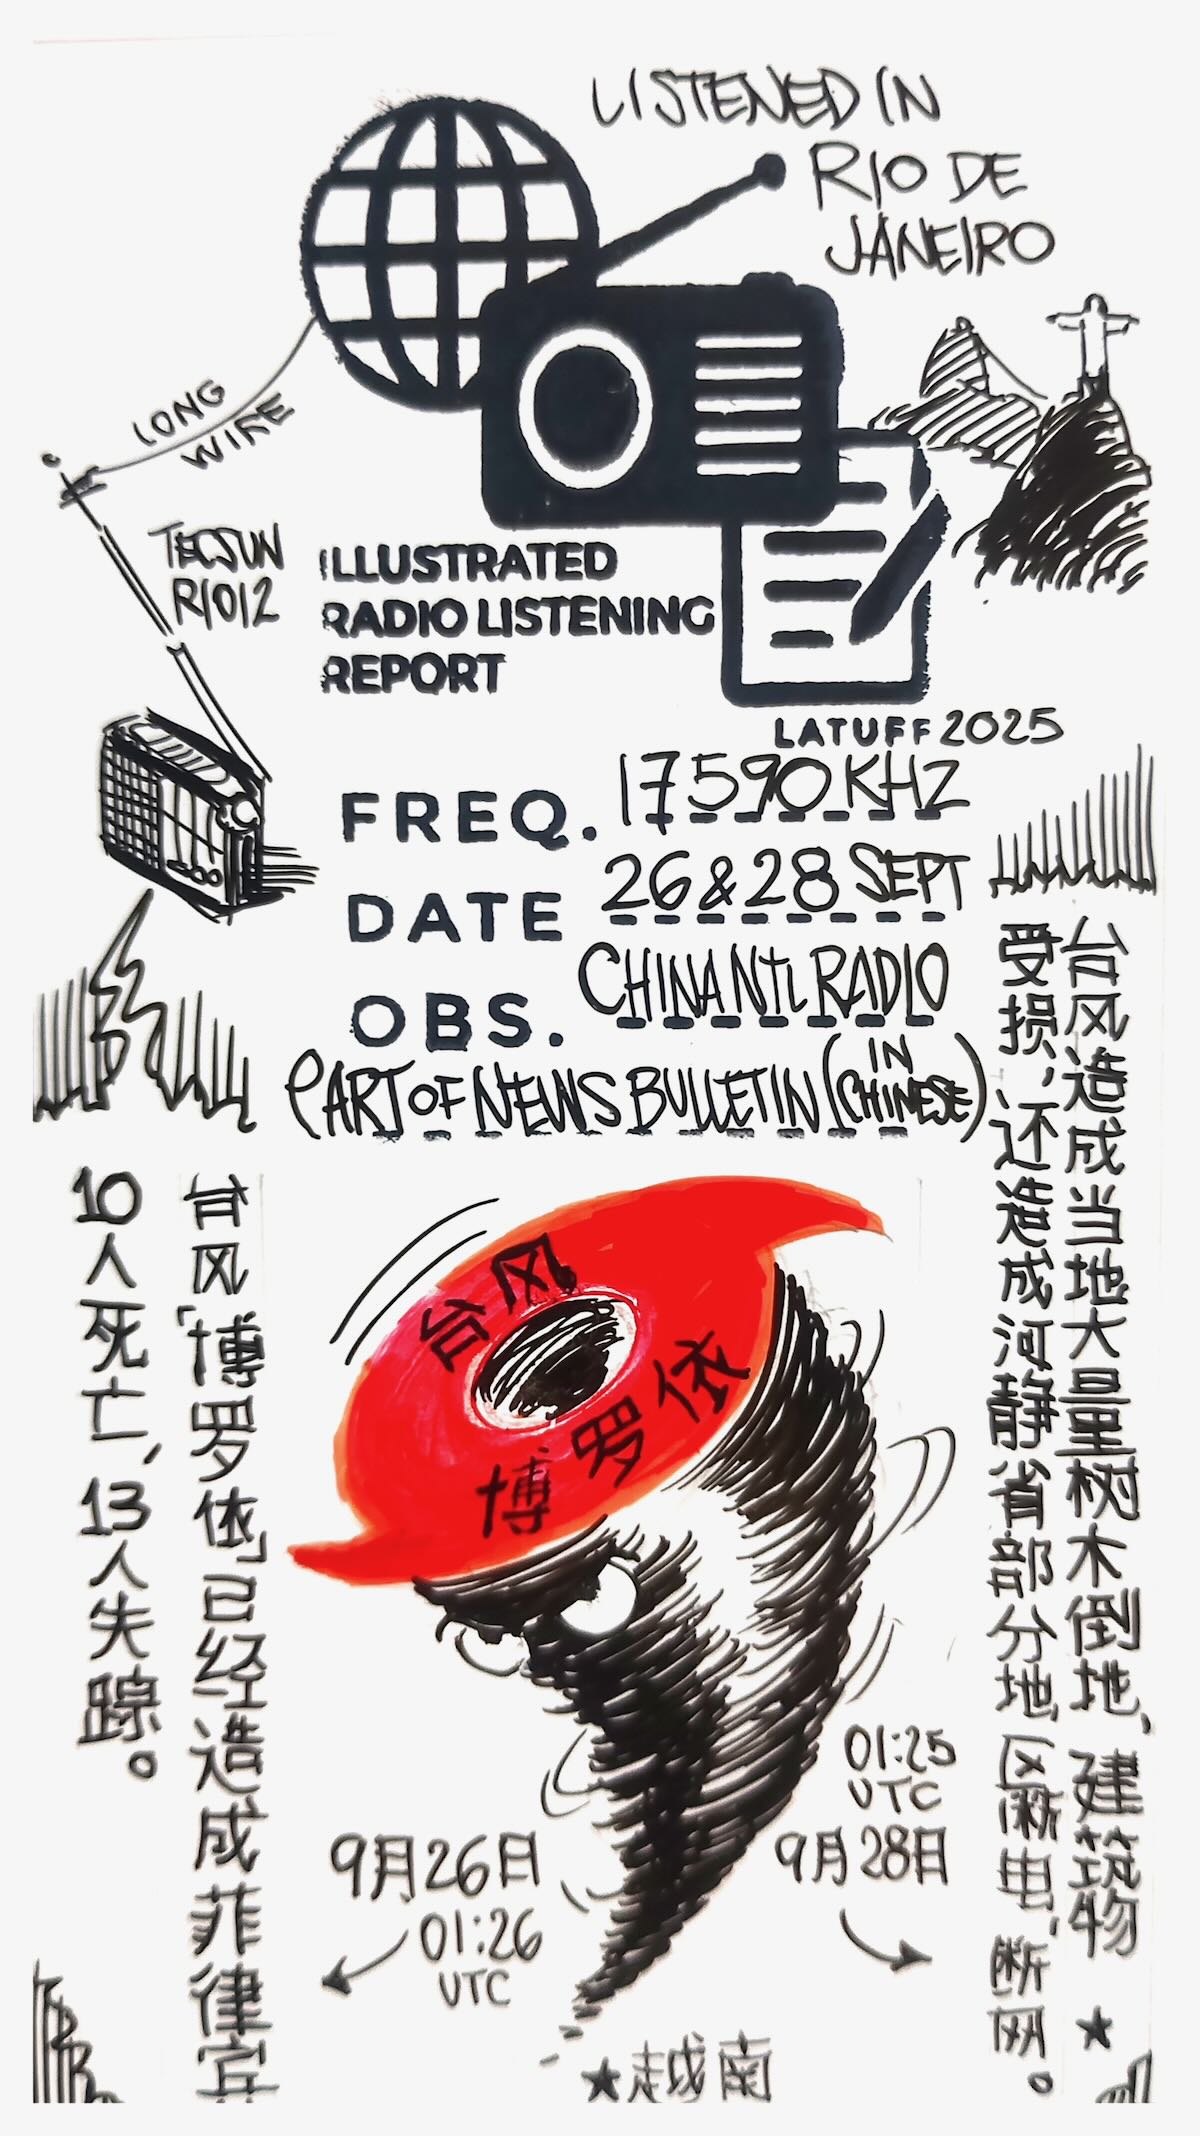 LISTENED IN
RIO DE
JANEIRO
LONG
WIRE
TECSUN
R1012
ILLUSTRATED
RADIO LISTENING
REPORT
LATUFF 2025
FREQ. 17590 KHZ
DATE 26 & 28 SEPT
OBS. CHINA NTL RADIO
PART OF NEWS BULLETIN (IN CHINESE)
台风造成当地大量树木倒地、建筑物
受损,还造成河静省部分地区断电、断网。
台风「博罗依」已经造成菲律宾
10人死亡,13人失踪。
台风
博罗依
9月26日
01:26
UTC
01:25
UTC
9月28日
★
★越南